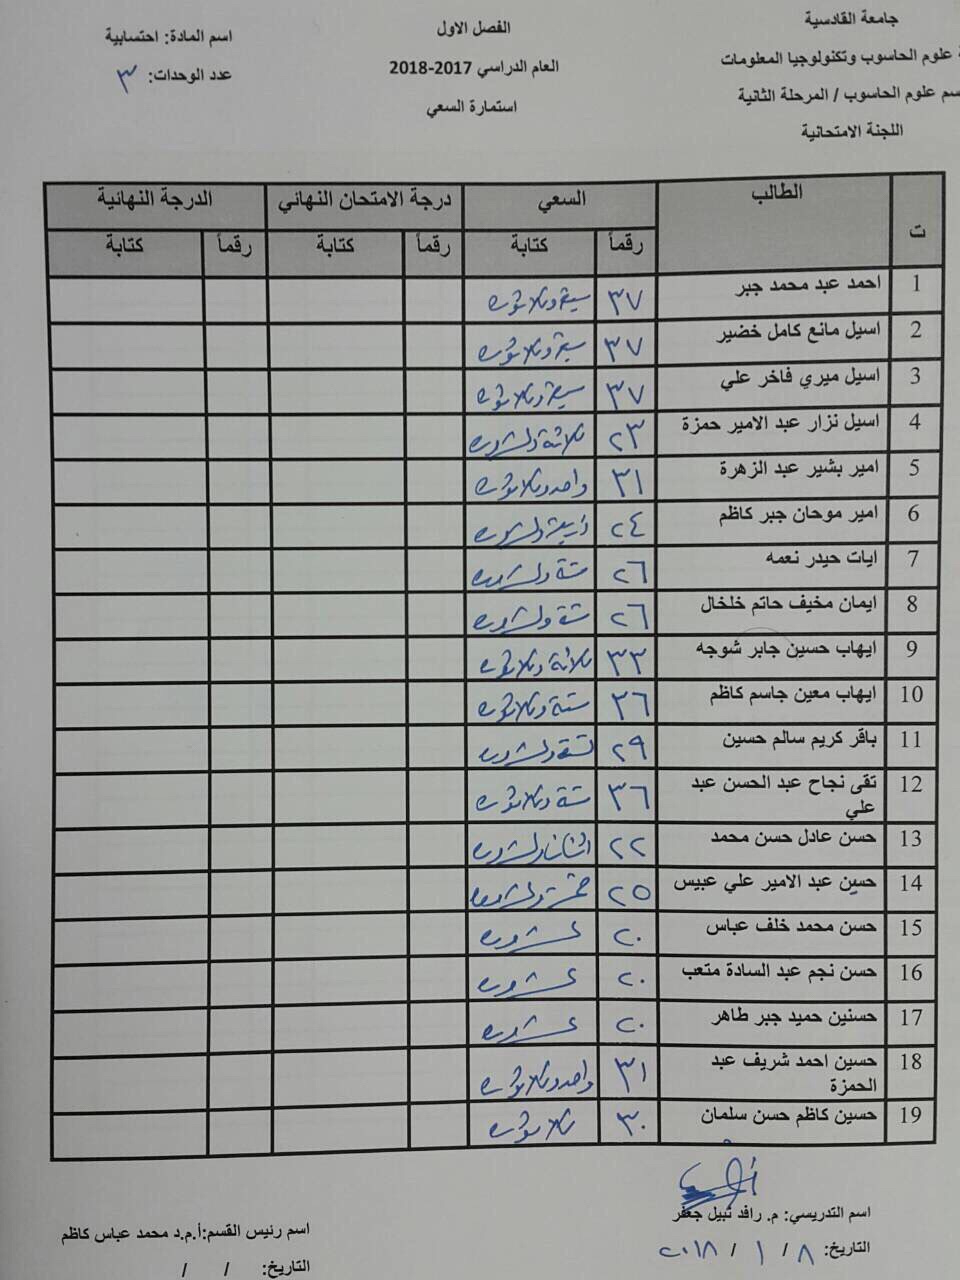 جامعة القادسية
ة علوم الحاسوب وتكنولوجيا المعلومات
سم علوم الحاسوب / المرحلة الثانية
اللجنة الامتحانية
الفصل الاول
العام الدراسي 2017-2018
استمارة السعي
اسم المادة: احتسابية
عدد الوحدات: ٣
ت الطالب السعي درجة الامتحان النهائي الدرجة النهائية
رقماً كتابة رقماً كتابة رقماً كتابة
1 احمد عبد محمد جبر ٣٧ سبعة وثلاثون
2 اسيل مانع كامل خضير ٣٧ سبعة وثلاثون
3 اسيل ميري فاخر علي ٣٧ سبعة وثلاثون
4 اسيل نزار عبد الامير حمزة ٢٣ ثلاثة وعشرون
5 امير بشير عبد الزهرة ٣١ واحد وثلاثون
6 امير موحان جبر كاظم ٢٤ اربعة وعشرون
7 ايات حيدر نعمه ٢٦ ستة وعشرون
8 ايمان مخيف حاتم خلخال ٢٦ ستة وعشرون
9 ايهاب حسين جابر شوجه ٣٣ ثلاثة وثلاثون
10 ايهاب معين جاسم كاظم ٣٦ ستة وثلاثون
11 باقر كريم سالم حسين ٢٩ تسعة وعشرون
12 تقى نجاح عبد الحسن عبد ٣٦ ستة وثلاثون
علي
13 حسن عادل حسن محمد ٢٢ اثنان وعشرون
14 حسين عبد الامير علي عبيس ٢٥ خمسة وعشرون
15 حسن محمد خلف عباس ٢٠ عشرون
16 حسن نجم عبد السادة متعب ٢٠ عشرون
17 حسنين حميد جبر طاهر ٢٠ عشرون
18 حسين احمد شريف عبد ٣١ واحد وثلاثون
الحمزة
19 حسين كاظم حسن سلمان ٣٠ ثلاثون
اسم التدريسي: م. رافد نبيل جعفر
التاريخ: ٨ / ١ / ٢٠١٨
اسم رئيس القسم:أ.م.د محمد عباس كاظم
التاريخ: / /